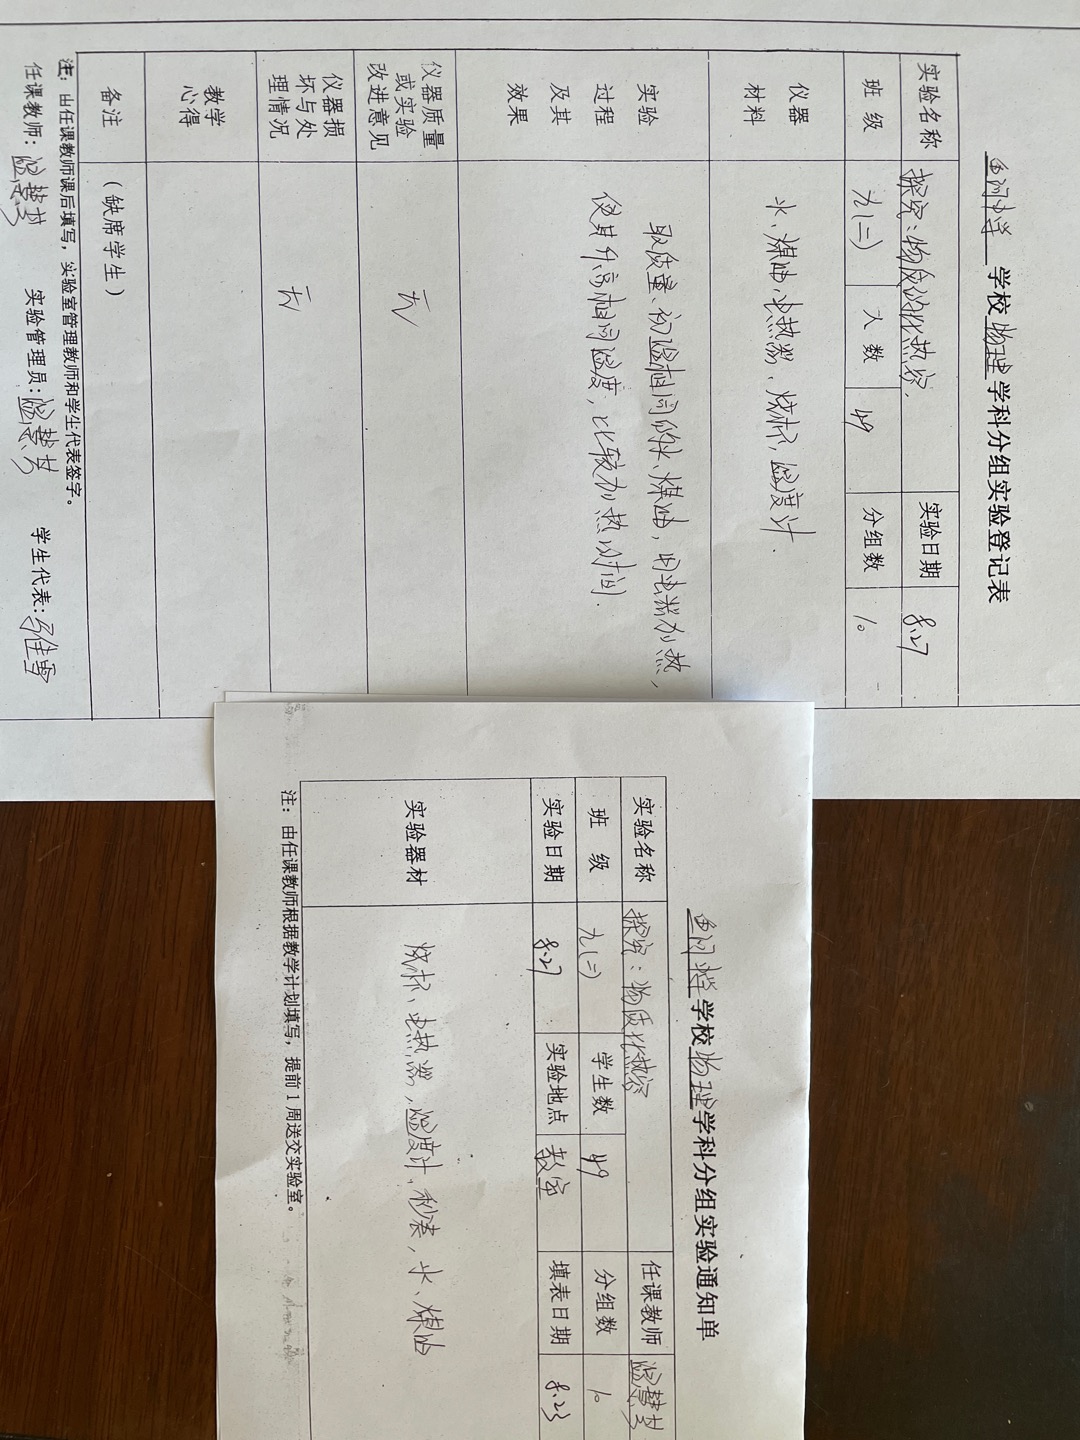 鱼河中学 学校 物理 学科分组实验登记表
实验名称 探究:物质的比热容. 实验日期 8.27
班 级 九(二) 人 数 49 分组数 10
仪器材料 水、煤油、电热器、烧杯、温度计.
实验过程及其效果 取质量、初温相同的水、煤油,用电热器加热,
使其升高相同温度,比较加热时间.
仪器质量或实验改进意见 无
仪器损坏与处理情况 无
教学心得
备注 (缺席学生)
注:由任课教师课后填写,实验室管理教师和学生代表签字。
任课教师: 实验管理员: 学生代表:
鱼河中学 学校 物理 学科分组实验通知单
实验名称 探究:物质比热容 任课教师
班 级 九(二) 学生数 49 分组数 10
实验日期 8.27 实验地点 教室 填表日期 8.23
实验器材 烧杯、电热器、温度计、秒表、水、煤油
注:由任课教师根据教学计划填写,提前1周送交实验室。